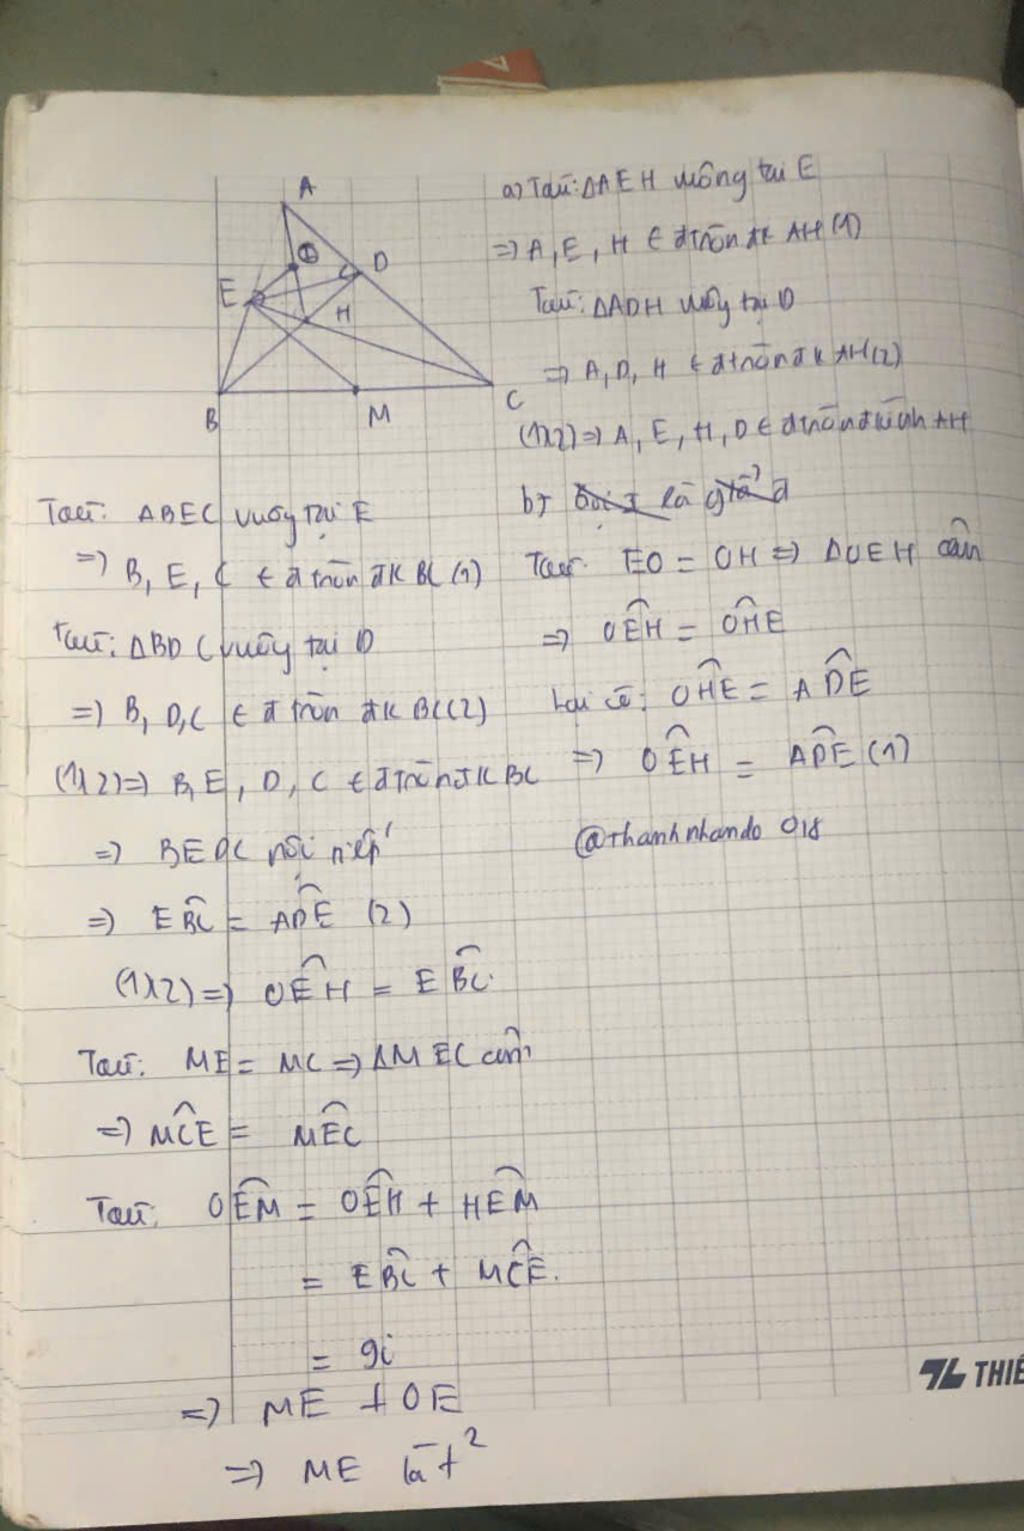 A
D
E
H
B
M
C
a) Taű: ΔAEH vuông tại E
=> A, E, H ∈ đtròn đk AH (1)
Taű: ΔADH vuôg tại D
=> A, D, H ∈ đtròn đk AH (2)
(1)(2) => A, E, H, D ∈ đtròn đkính AH
b)
là
Taű: EO = OH => ΔOEH cân
=> OÊH = OĤE
Lại có: OĤE = AD̂E
=> OÊH = AD̂E (1)
@thanhnhando 018
Taű: ΔBEC vuôg tại E
=> B, E, C ∈ đ tròn đk BC (1)
Taű: ΔBDC vuôg tại D
=> B, D, C ∈ đ tròn đk BC (2)
(1)(2) => B, E, D, C ∈ đtròn đk BC
=> BEDC nội tiếp
=> EB̂C = AD̂E (2)
(1)(2) => OÊH = EB̂C.
Taű: ME = MC => ΔMEC cân
=> MĈE = MÊC
Taű: OÊM = OÊH + HÊM
= EB̂C + MĈE.
= 90
=> ME ⊥ OE
=> ME là t²
TL THIÊ